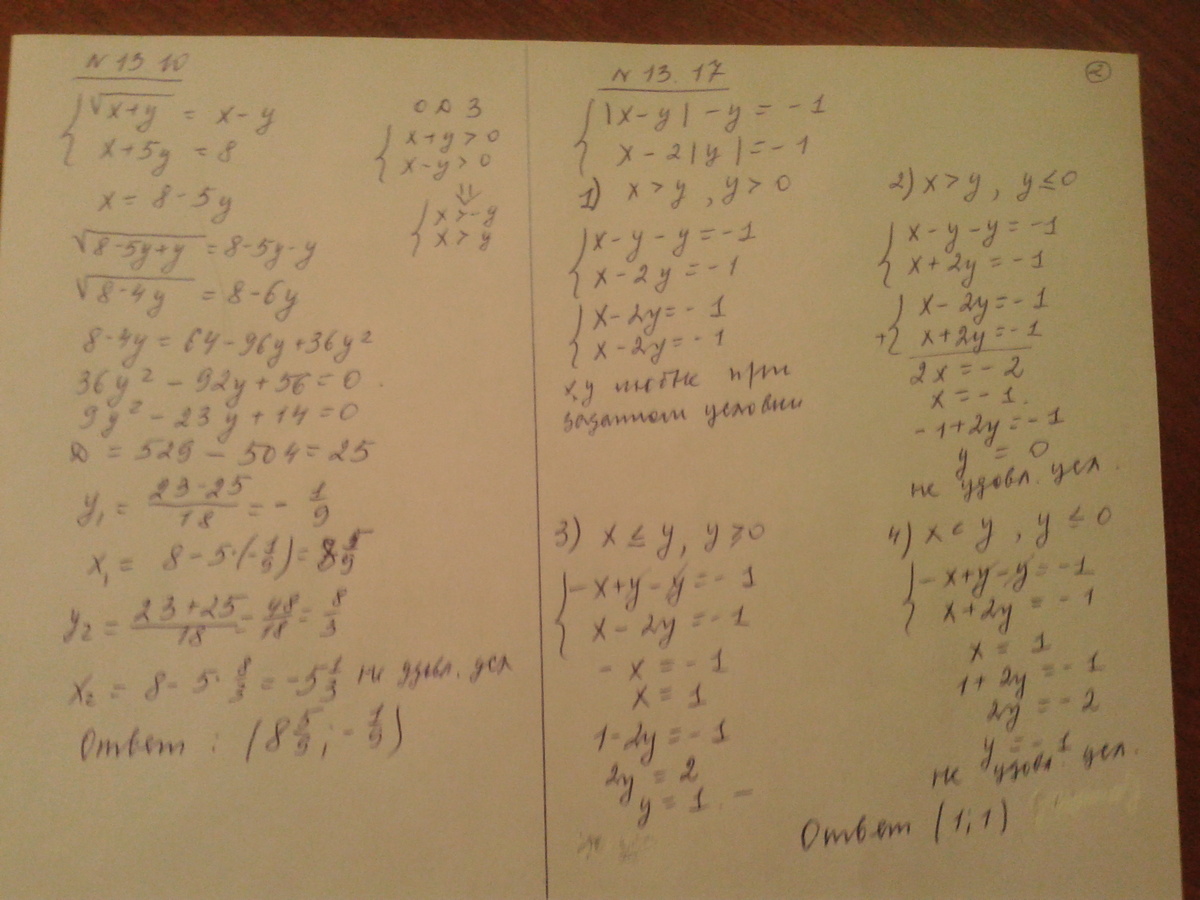 N 13 10
{ √(x+y) = x-y
x+5y = 8
ОДЗ
{ x+y>0
x-y>0
⇓
{ x>-y
x>y
x = 8-5y
√(8-5y+y) = 8-5y-y
√(8-4y) = 8-6y
8-4y = 64-96y+36y²
36y² - 92y+56=0.
9y² - 23y+14=0
D = 529 - 504=25
y₁ = (23-25)/18 = - 1/9
x₁ = 8-5·(-1/9)= 8 5/9
y₂ = (23+25)/18 = 48/18 = 8/3
x₂ = 8- 5·8/3 = -5 1/3 не удовл. усл
Ответ: (8 5/9; -1/9)
N 13. 17
2
{ |x-y| - y = -1
x - 2|y| = -1
1) x>y, y>0
{ x-y-y=-1
x-2y=-1
{ x-2y=-1
x-2y=-1
x,y любые при
заданном условии
2) x>y, y≤0
{ x-y-y=-1
x+2y=-1
+{ x-2y=-1
x+2y=-1
2x=-2
x=-1.
-1+2y=-1
y = 0
не удовл. усл.
3) x≤y, y≥0
{ -x+y-y=-1
x-2y=-1
-x=-1
x=1
1-2y=-1
2y=2
y=1. -
4) x<y, y≤0
{ -x+y-y=-1
x+2y=-1
x=1
1+2y=-1
2y=-2
y=-1
не удовл. усл.
Ответ (1;1)